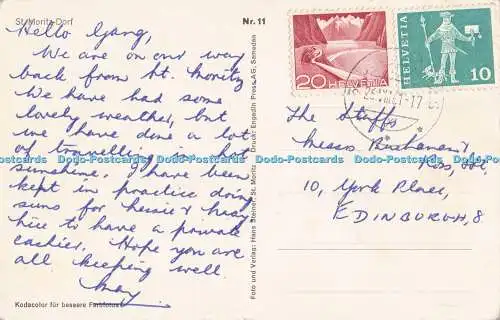 St. Moritz-Dorf
Nr. 11
Hello Gang,
We are on our way
back from St. Moritz
We have had some
lovely weather, but
we have done a lot
of travelling in hot
sunshine. I have been
kept in practice doing
sums for Jessie & May
nice to have a private
cashier. Hope you are
all keeping well.
May
Kodacolor für bessere Farbfotos
Foto und Verlag: Hans Steiner, St. Moritz / Druck: Engadin Press AG, Samedan
20 HELVETIA
HELVETIA 10
The Staff,
Messrs Buchanan
10, York Place,
EDINBURGH, 8
Dodo-Postcards Dodo-Postcards Dodo-Postcards Dodo-Postcards Dodo-Postcards